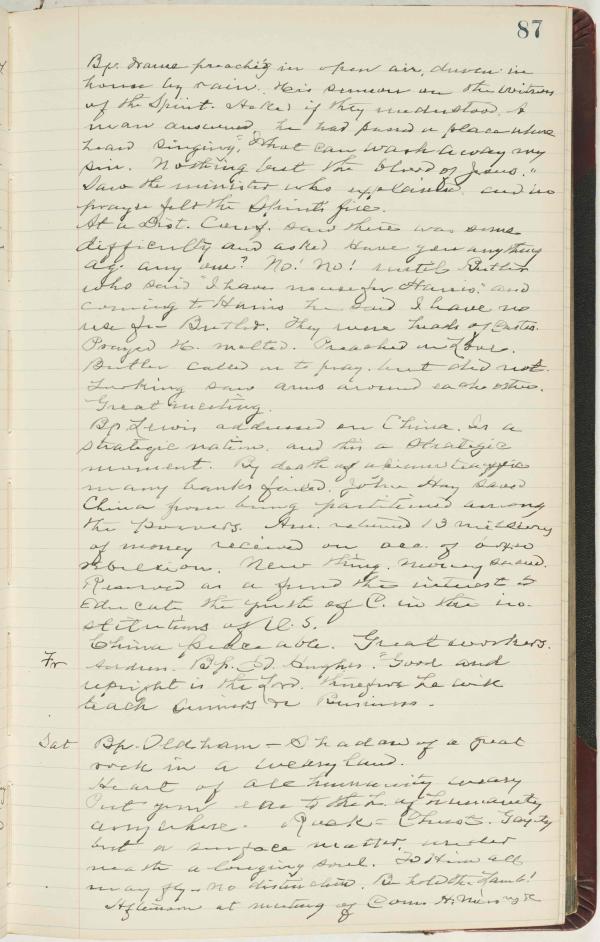 87
Bp. Warne preach'g in open air, driven in
house by rain. His sermon on the Witness
of the Spirit. Asked if they understood. A
man answered, he had passed a place where
heard singing, "What can wash away my
sin. Nothing but the blood of Jesus."
Saw the minister who explained and in
prayer felt the Spirit's fire.
At a Dist. Conf. saw there was some
difficulty and asked Have you anything
ag. any one? No! No! until Butler
who said I have no use for Harris, and
coming to Harris he said I have no
use for Butler. They were heads of castes.
Prayed H. melted. Preached on Love.
Butler called on to pray but did not.
Looking saw arms around each other.
Great meeting.
Bp Lewis addressed on China. Is a
strategic nation, and this a strategic
moment. By death of
many banks failed. John Hay saved
China from being partitioned among
the Powers. Am. returned 13 millions
of money received on acc. of boxer
rebellion. New thing. Money saved.
Reserved as a fund the interest to
educate the youth of C. in the in-
stitutions of U.S.
China peaceable. Great workers.
Fr Address. Bp. Hughes. "Good and
upright is the Lord. therefore he will
teach sinners &c Business.
Sat Bp. Oldham - Shadow of a great
rock in a weary land.
Heart of all humanity weary
Put your ear to the h. of humanity
anywhere. Rock = Christ. Gayety
but a surface matter, under
neath a longing soul. To Him all
may fly - no distinction. Behold the Lamb!
Afternoon at meeting of Com. H. Miss